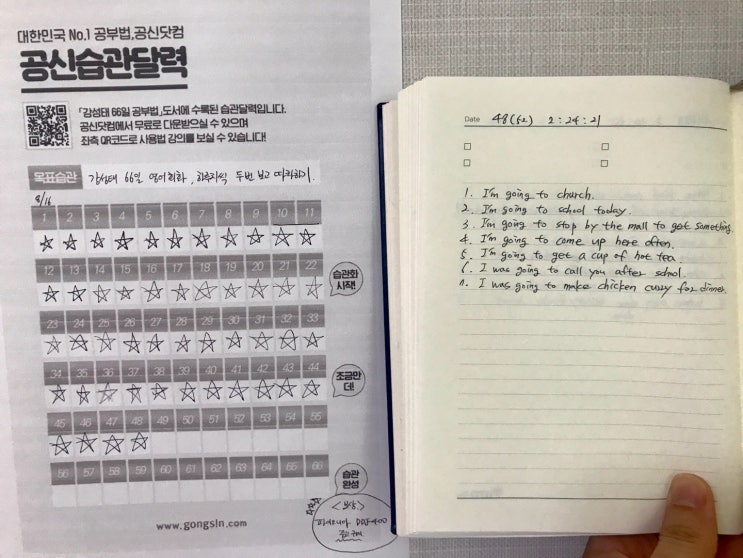 대한민국 No.1 공부법, 공신닷컴
공신습관달력
「강성태 66일 공부법」도서에 수록된 습관달력입니다.
공신닷컴에서 무료로 다운받으실 수 있으며
좌측 QR코드로 사용법 강의를 보실 수 있습니다!
목표습관 강성태 66일 영어회화, 하루지식 두번 보고 따라하기.
8/16
1 2 3 4 5 6 7 8 9 10 11
12 13 14 15 16 17 18 19 20 21 22
습관화
시작!
23 24 25 26 27 28 29 30 31 32 33
34 35 36 37 38 39 40 41 42 43 44
조금만
더!
45 46 47 48 49 50 51 52 53 54 55
56 57 58 59 60 61 62 63 64 65 66
습관
완성
<보상>
파이오니아 DDJ-400
www.gongsin.com
Date 48(52) 2:24:21
1. I'm going to church.
2. I'm going to school today.
3. I'm going to stop by the mall to get something.
4. I'm going to come up here often.
5. I'm going to get a cup of hot tea.
6. I was going to call you after school.
7. I was going to make chicken curry for dinner.